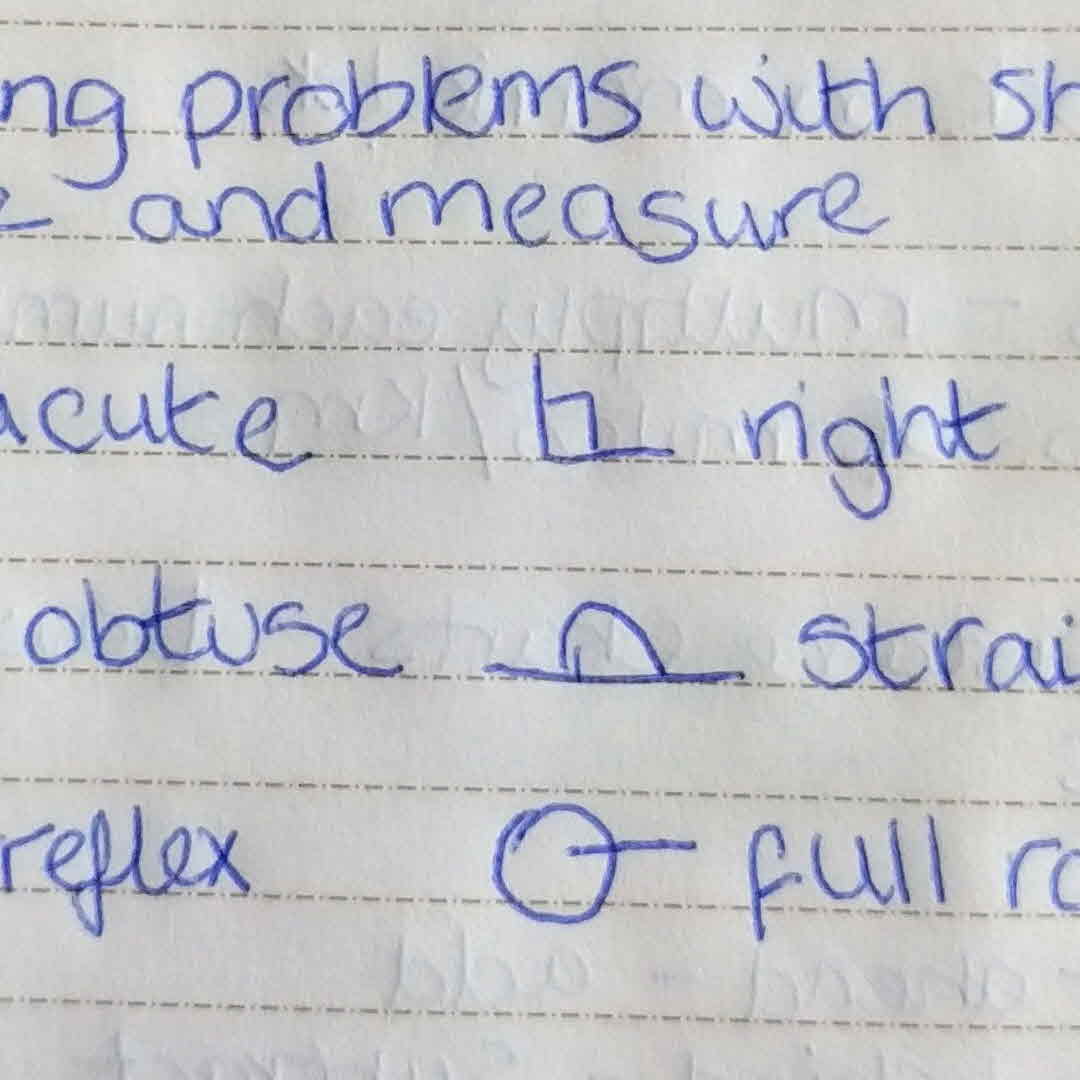 ng problems with sh
and measure
acute right
obtuse strai
reflex full ro